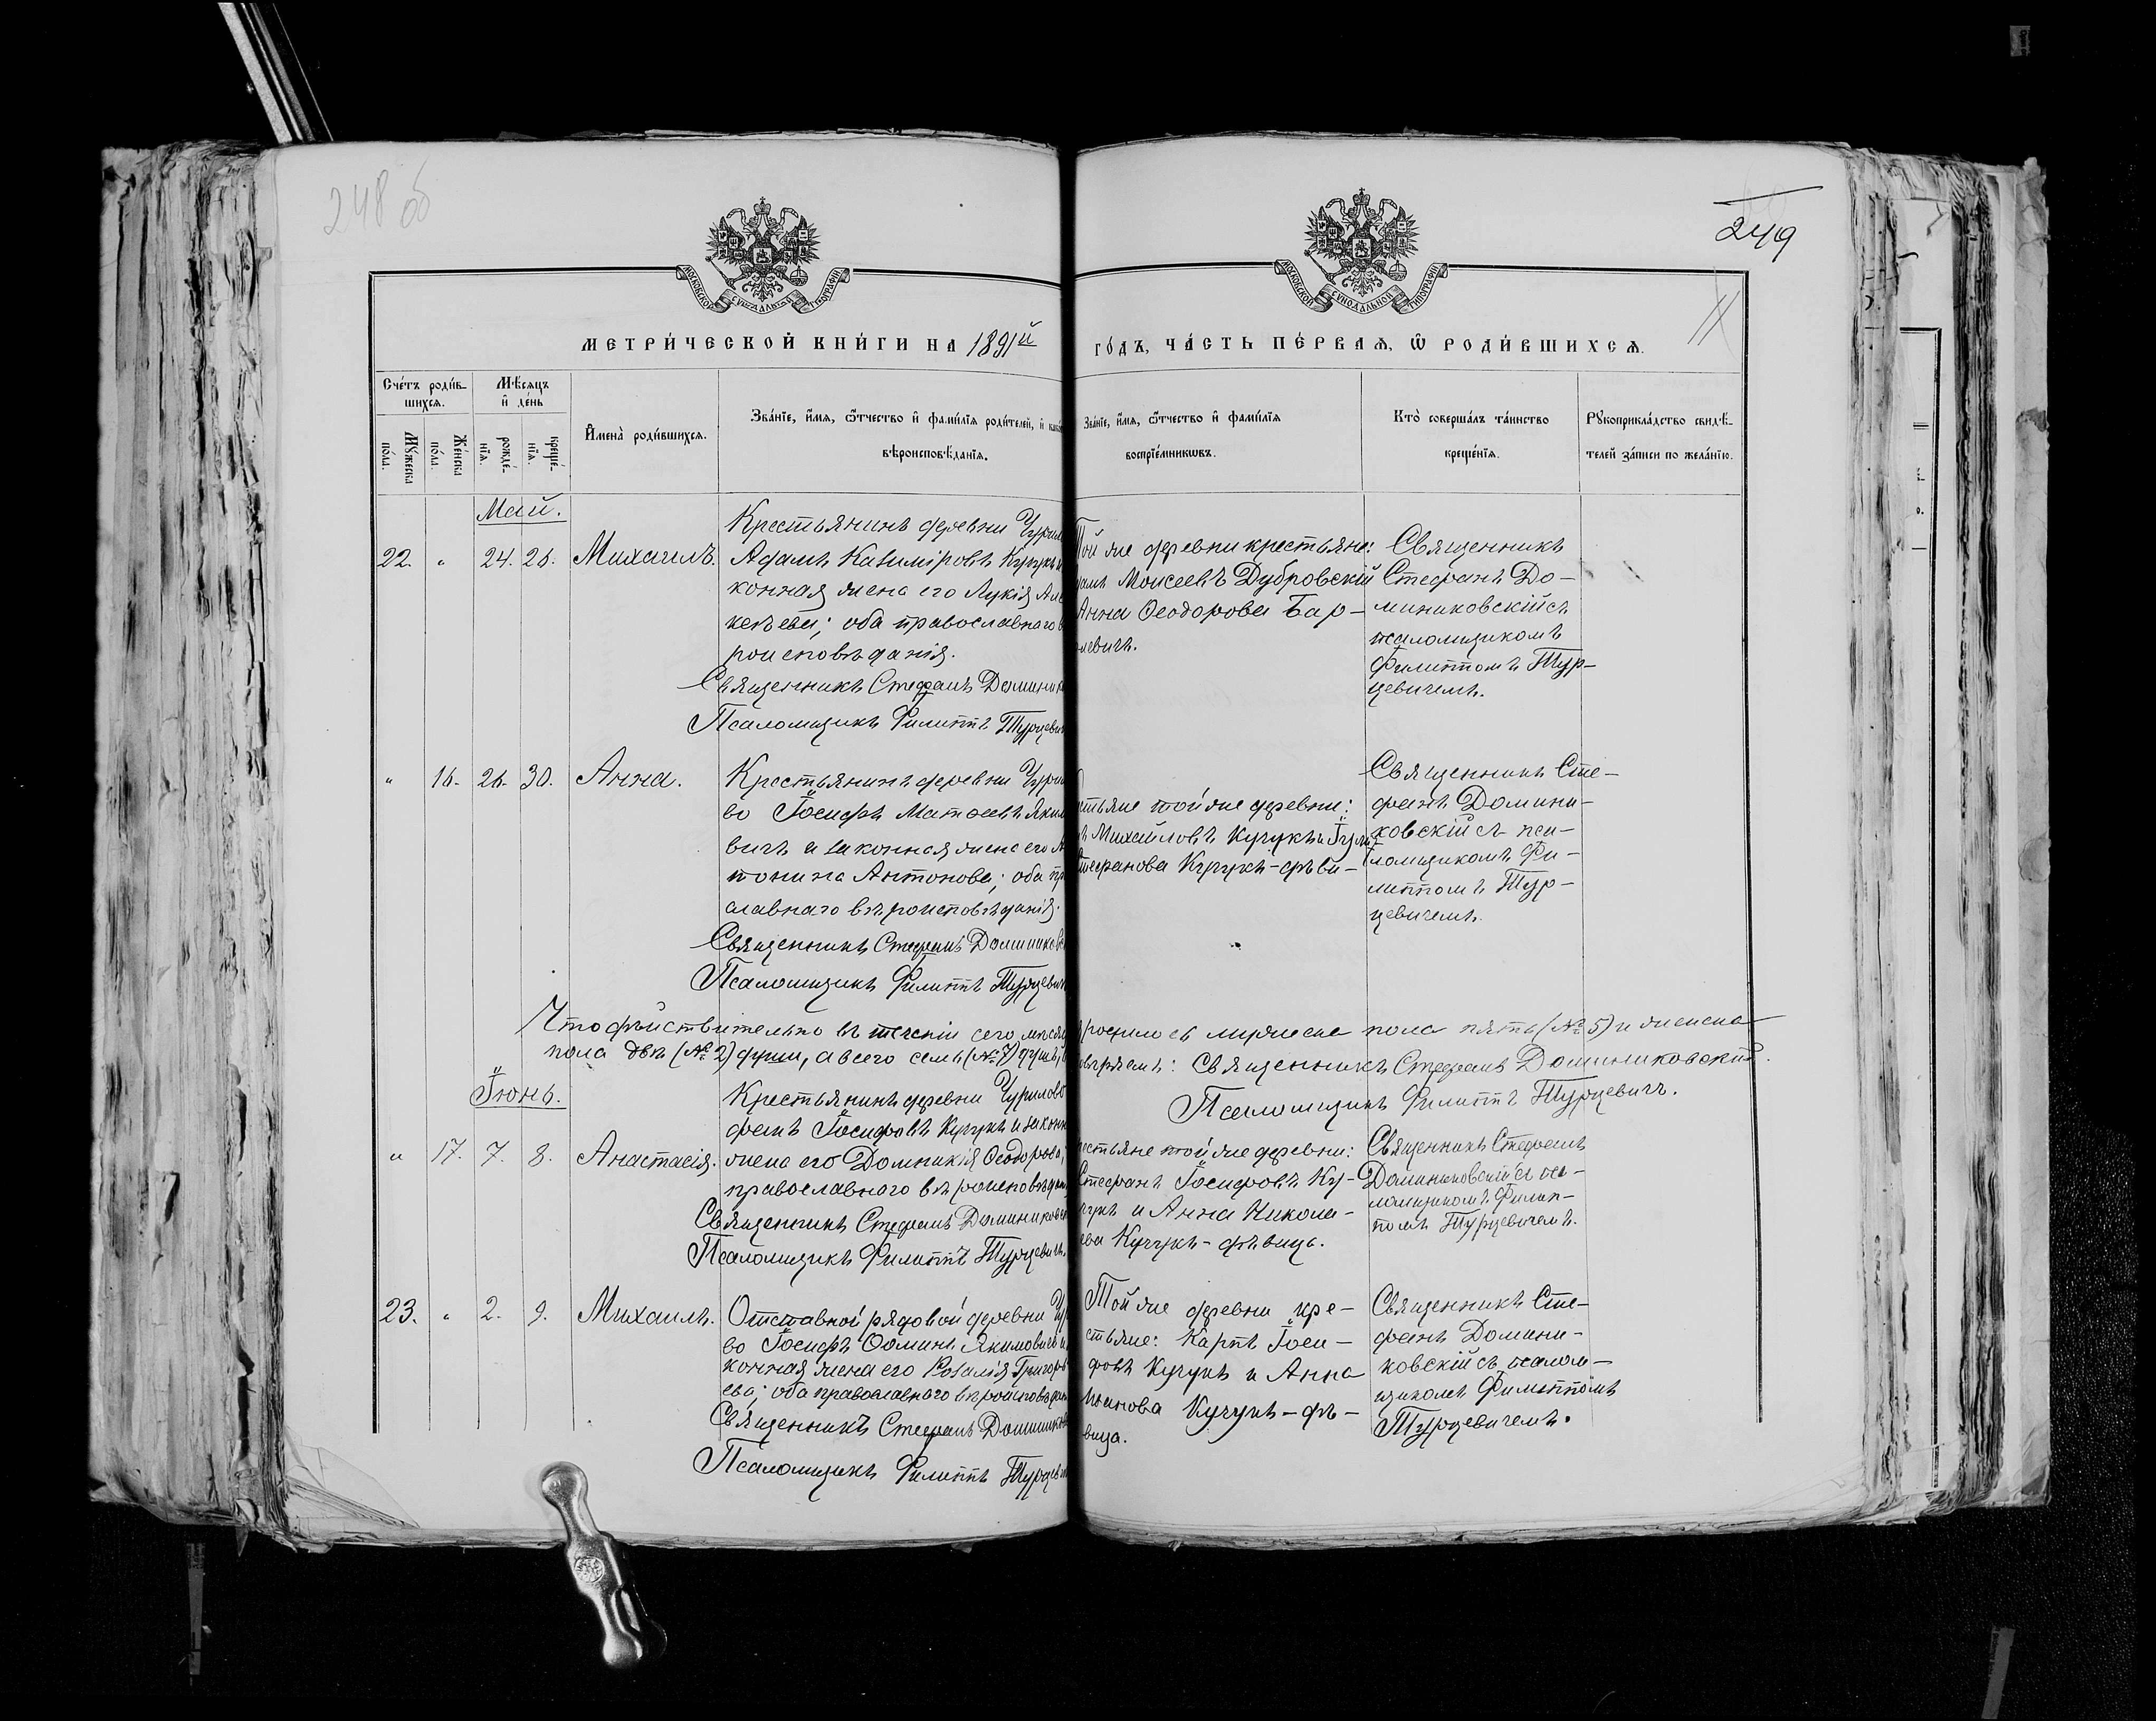 248 об
249
11
МОСКОВСКОЙ СУНОДАЛЬНОЙ ТИПОГРАФІИ
МОСКОВСКОЙ СУНОДАЛЬНОЙ ТИПОГРАФІИ
МЕТРИ́ЧЕСКОЙ КНИ́ГИ НА 1891й
ГО́ДЪ, ЧА́СТЬ ПЕ́РВАЯ, Ѡ РОДИ́ВШИХСЯ.
Сче́тъ роди́в-
шихся.
Мѣ́сяцъ
и҆ де́нь
Мꙋ́жеска
по́ла.
Же́нска
по́ла.
рожде́-
нїя.
креще́-
нїя.
И҆мена̀ роди́вшихся.
Зва́нїе, и҆́мя, ѻ҆́тчество и҆ фами́лїя роди́телей, и҆ како
вѣроисповѣ́данїя.
Зва́нїе, и҆́мя, ѻ҆́тчество и҆ фами́лїя
воспрїе́мникѡвъ.
Кто̀ соверша́лъ та́инство
креще́нїя.
Рꙋкоприкла́дство свидѣ́-
телей за́писи по жела́нїю.
Май.
22. " 24. 26. Михаилъ.
Крестьянинъ деревни Чурил
Адамъ Казиміровъ Кучукъ и
конная жена его Лукія Але
ксѣева; оба православнаго в
роисповѣданія.
Священникъ Стефанъ Доминик
Псаломщикъ Филиппъ Турцевич
Той же деревни крестьяне:
дамъ Моисеевъ Дубровскій
Анна Ѳеодорова Бар-
невичъ.
Священникъ
Стефанъ До-
миниковскій съ
псаломщикомъ
Филиппомъ Тур-
цевичемъ.
" 16. 26. 30. Анна.
Крестьянинъ деревни Чурил
во Іосифъ Матѳеевъ Яким
вичъ и законная жена его Ан
тонина Антонова; оба пр
славнаго вѣроисповѣданія.
Священникъ Стефанъ Доминиковс
Псаломщикъ Филиппъ Турцевич
стьяне той же деревни:
ъ Михайловъ Кучукъ и
Стефанова Кучукъ-дѣви-
Священникъ Сте-
фанъ Домини-
ковскій съ пса-
ломщикомъ Фи-
липпомъ Тур-
цевичемъ.
Что дѣйствительно въ теченіи сего мѣсяц
родилось мужеска пола пять (№ 5) и женска
пола двѣ (№ 2) души, а всего семь (№ 7) душъ,
Священникъ Стефанъ Доминиковскій.
Псаломщикъ Филиппъ Турцевичъ.
Іюнь.
" 17. 7. 8. Анастасія.
Крестьянинъ деревни Чурилово
фанъ Іосифовъ Кучукъ и законн
жена его Домникія Ѳеодорова;
православнаго вѣроисповѣдан
Священникъ Стефанъ Доминиковск
Псаломщикъ Филиппъ Турцевичъ.
естьяне той же деревни:
Стефанъ Іосифовъ Ку-
чукъ и Анна Никола-
ева Кучукъ-дѣвица.
Священникъ Стефанъ
Доминиковскій съ пса-
ломщикомъ Филип-
помъ Турцевичемъ.
23. " 2. 9. Михаилъ.
Отставной рядовой деревни Чу
во Іосифъ Ѳоминъ Якимовичъ и
конная жена его Розалія Григорь
ева; оба православнаго вѣроисповѣдан
Священникъ Стефанъ Домиников
Псаломщикъ Филиппъ Турцеви
Той же деревни кре-
стьяне: Карпъ Іоси-
фовъ Кучукъ и Анна
Иванова Кучукъ-дѣ-
вица.
Священникъ Сте-
фанъ Домини-
ковскій съ псалом-
щикомъ Филиппомъ
Турцевичемъ.